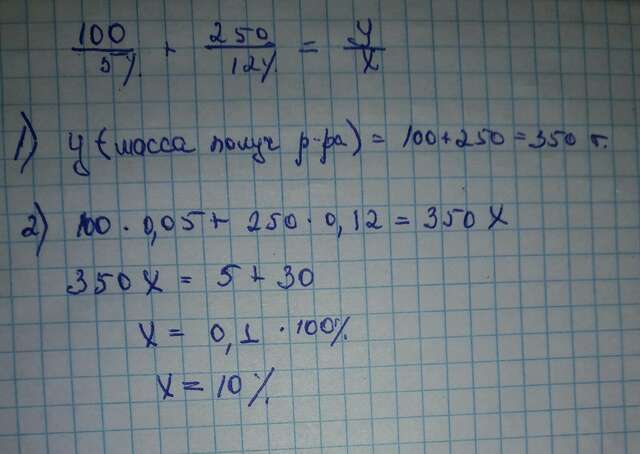 100/5% + 250/12% = y/x
1) y (масса получ р-ра) = 100+250 = 350 г.
2) 100 · 0,05 + 250 · 0,12 = 350 X
350 X = 5 + 30
X = 0,1 · 100%
X = 10%